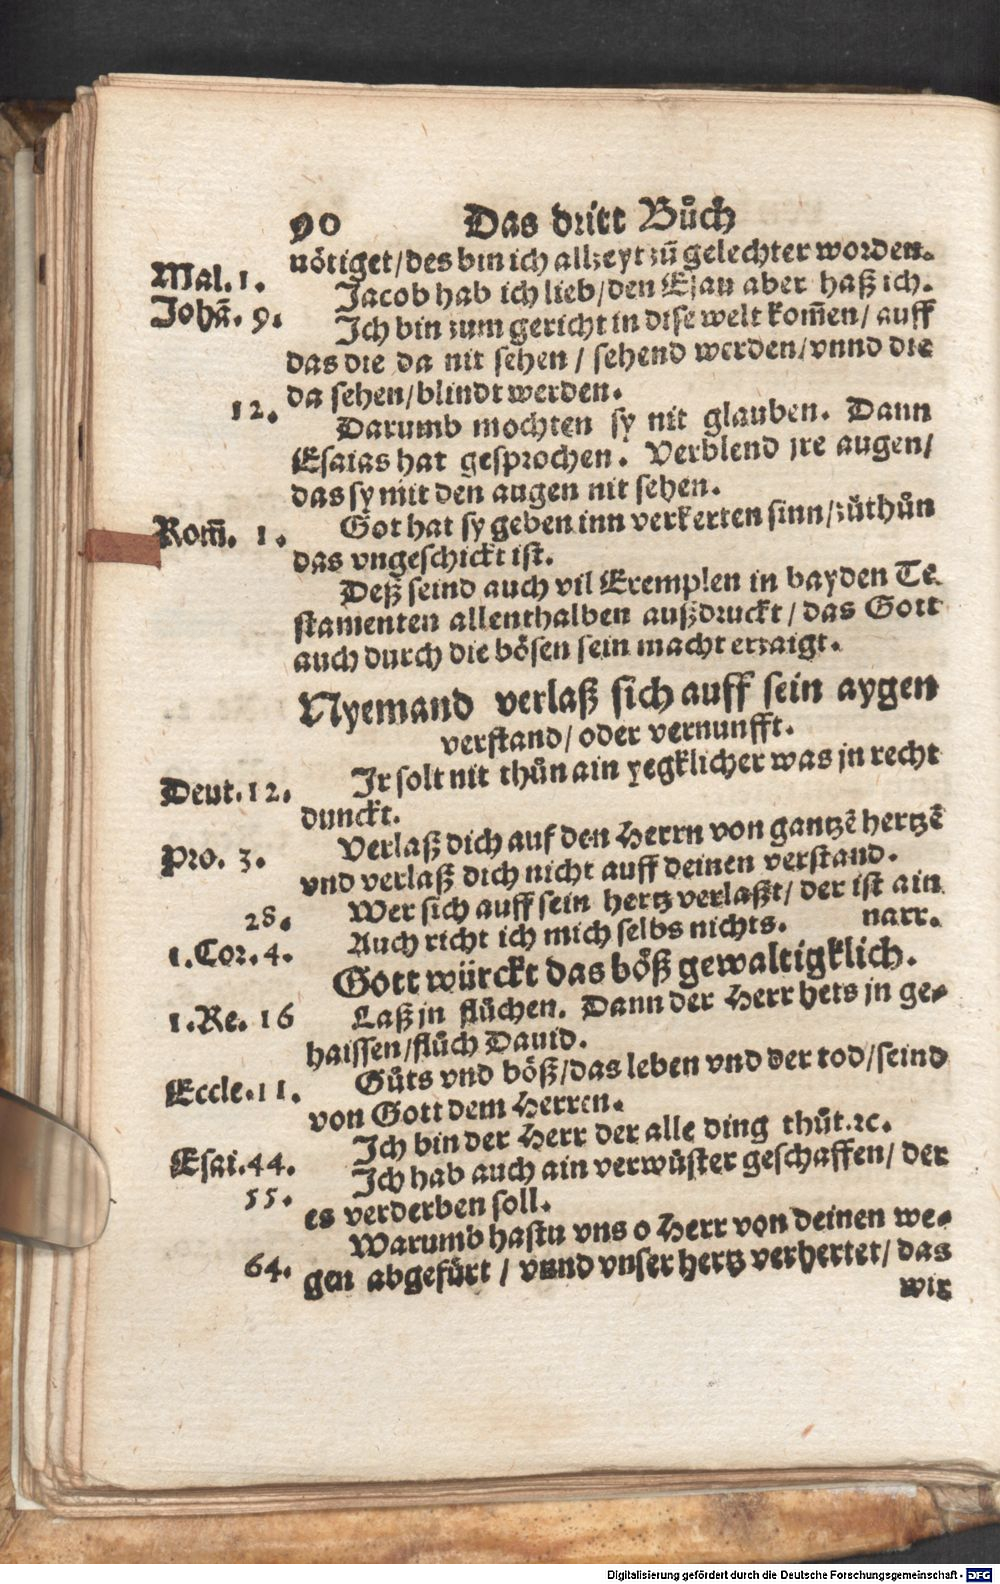 90 Das dritt Bůch
nötiget/des bin ich allzeyt zů gelechter worden.
Mal. 1. Jacob hab ich lieb/den Esau aber haß ich.
Johā. 9. Ich bin zum gericht in dise welt kom̄en/ auff
das die da nit sehen / sehend werden/vnnd die
da sehen/blindt werden.
12. Darumb mochten sy nit glauben. Dann
Esaias hat gesprochen. Verblend jre augen/
das sy mit den augen nit sehen.
Rom̄. 1. Got hat sy geben inn verkerten sinn/zůthůn
das vngeschickt ist.
Deß seind auch vil Exemplen in bayden Te
stamenten allenthalben außdruckt/das Gott
auch durch die bösen sein macht erzaigt.
Nyemand verlaß sich auff sein aygen
verstand/oder vernunfft.
Deut. 12. Ir solt nit thůn ain yegklicher was jn recht
dunckt.
Pro. 3. Verlaß dich auf den Herrn von gantzē hertzē
vnd verlaß dich nicht auff deinen verstand.
28. Wer sich auff sein hertz verlaßt/ der ist ain
narr.
1. Cor. 4. Auch richt ich mich selbs nichts.
Gott würckt das böß gewaltigklich.
1. Re. 16 Laß jn flůchen. Dann der Herr hets jn ge-
haissen/flůch Dauid.
Eccle. 11. Gůts vnd böß/das leben vnd der tod/seind
von Gott dem Herren.
Esai. 44. Ich bin der Herr der alle ding thůt.ꝛc.
55. Ich hab auch ain verwüster geschaffen/ der
es verderben soll.
64. Warumb hastu vns o Herr von deinen we-
gen abgefürt / vnnd vnser hertz verhertet/ das
wir
Digitalisierung gefördert durch die Deutsche Forschungsgemeinschaft - DFG